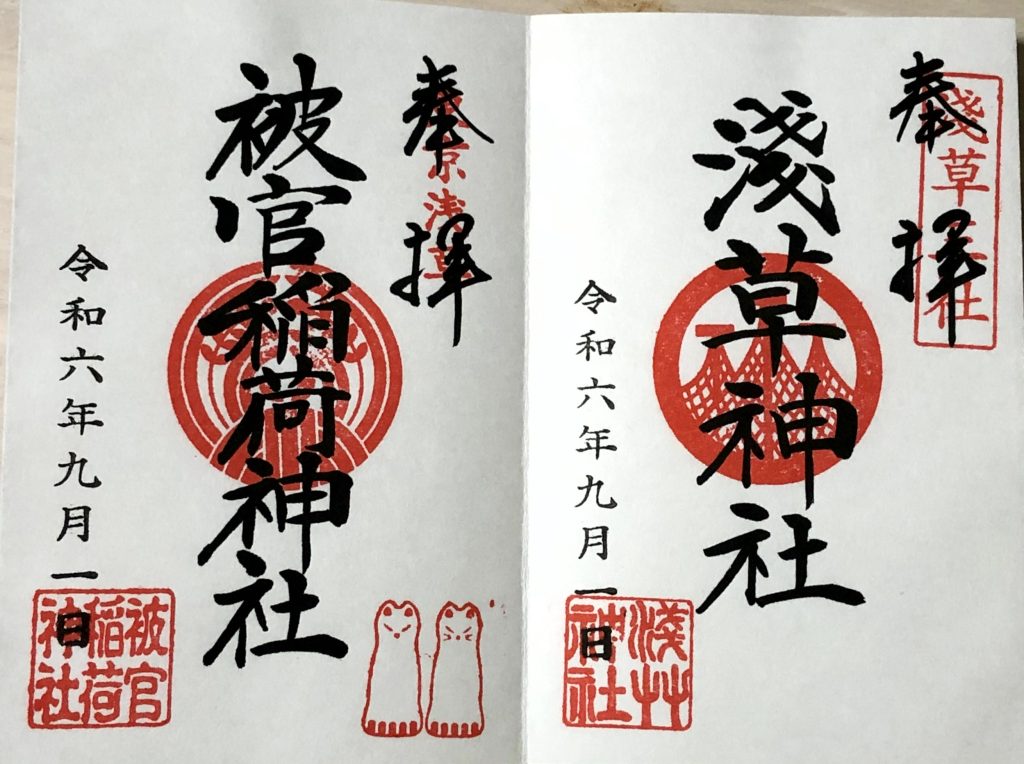 奉拝
淺草神社
淺草神社
令和六年九月一日
淺艸神社
奉拝
東京浅草
被官稲荷神社
令和六年九月一日
被官稲荷神社